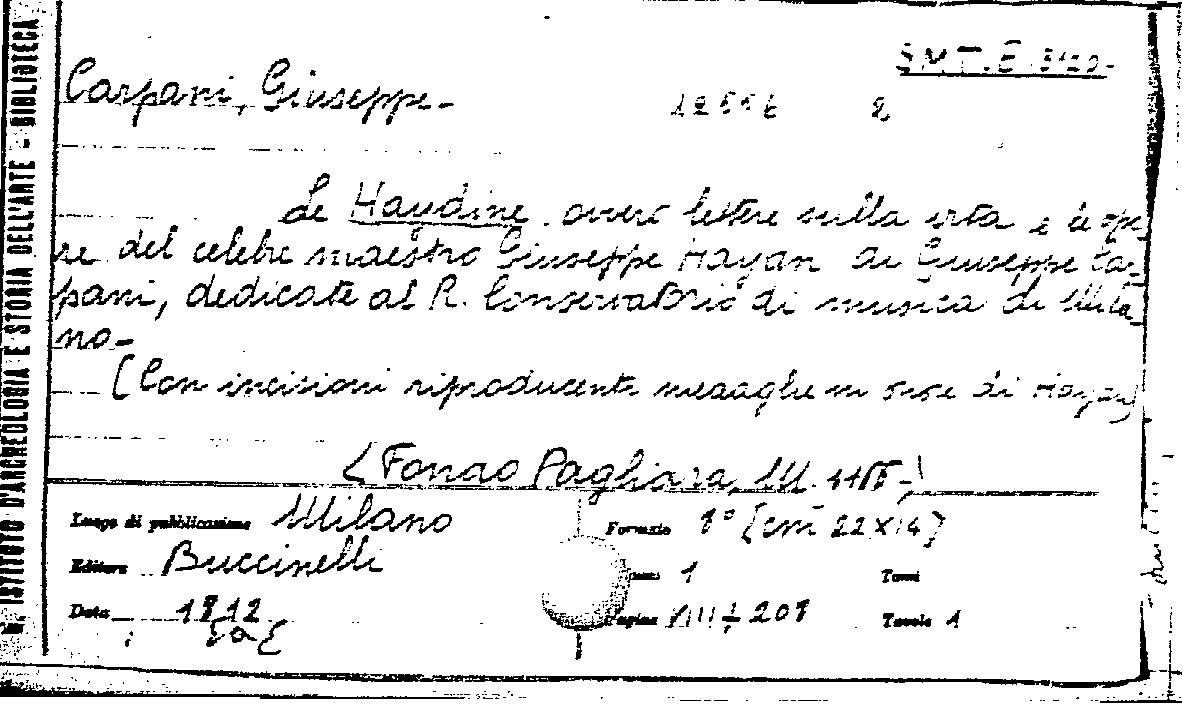 ISTITUTO D'ARCHEOLOGIA E STORIA DELL'ARTE - BIBLIOTECA
S.M.T.E.
Carpani, Giuseppe-
2
Le Haydine, ovvero lettere sulla vita e le ope-
re del celebre maestro Giuseppe Haydn di Giuseppe Car-
pani, dedicate al R. Conservatorio di musica di Mila-
no-
[Con incisioni riproducenti medaglie in onore di Haydn]
(Fondo Pagliara, M.
Luogo di pubblicazione Milano Formato 8° [cm 22x14]
Editore Buccinelli 1 Tomi
Data 1812 Pagine XIII + 208 Tavole 1